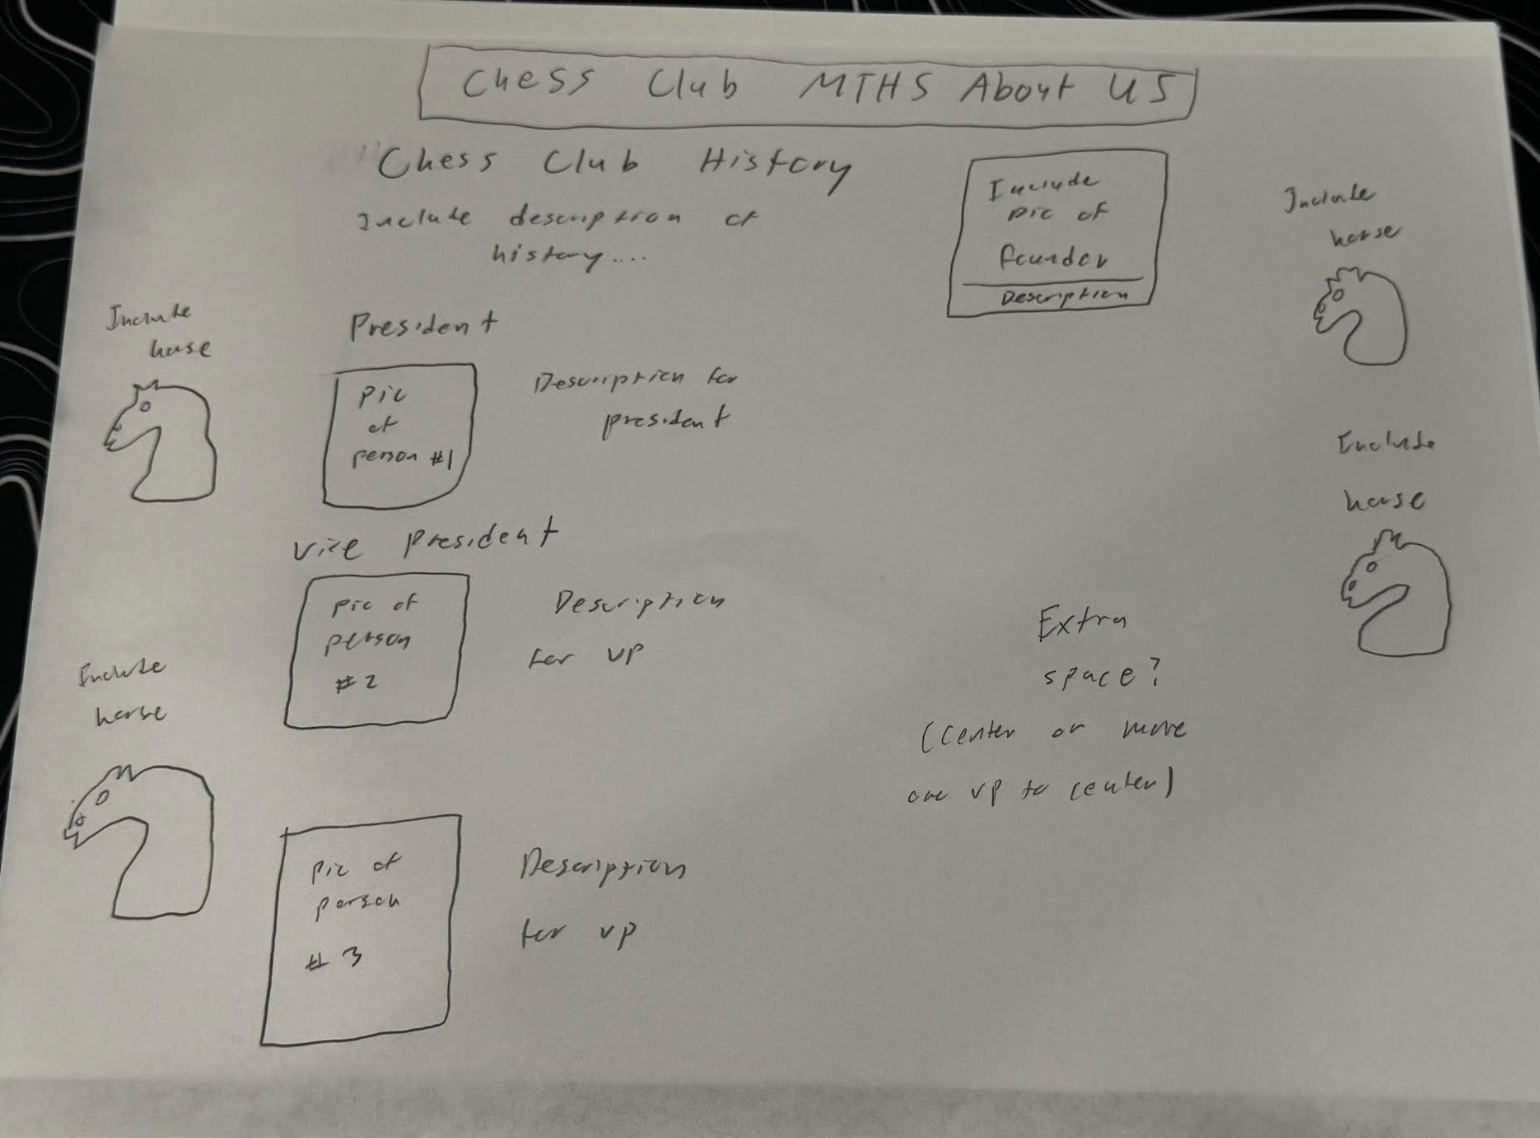 Chess Club MTHS About US
Chess Club History
Include description of
history....
Include
pic of
founder
Description
Include
horse
Include
horse
President
Pic
of
person #1
Description for
president
Include
horse
Vice president
pic of
person
#2
Description
for vp
Include
horse
Extra
space?
(center or move
one vp to center)
pic of
person
#3
Description
for vp